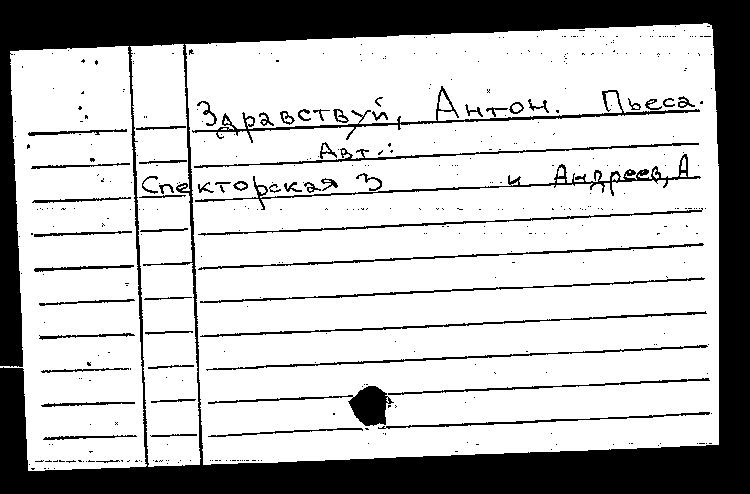 Здравствуй, Антон. Пьеса.
Авт.:
Спекторская З и Андреев, А